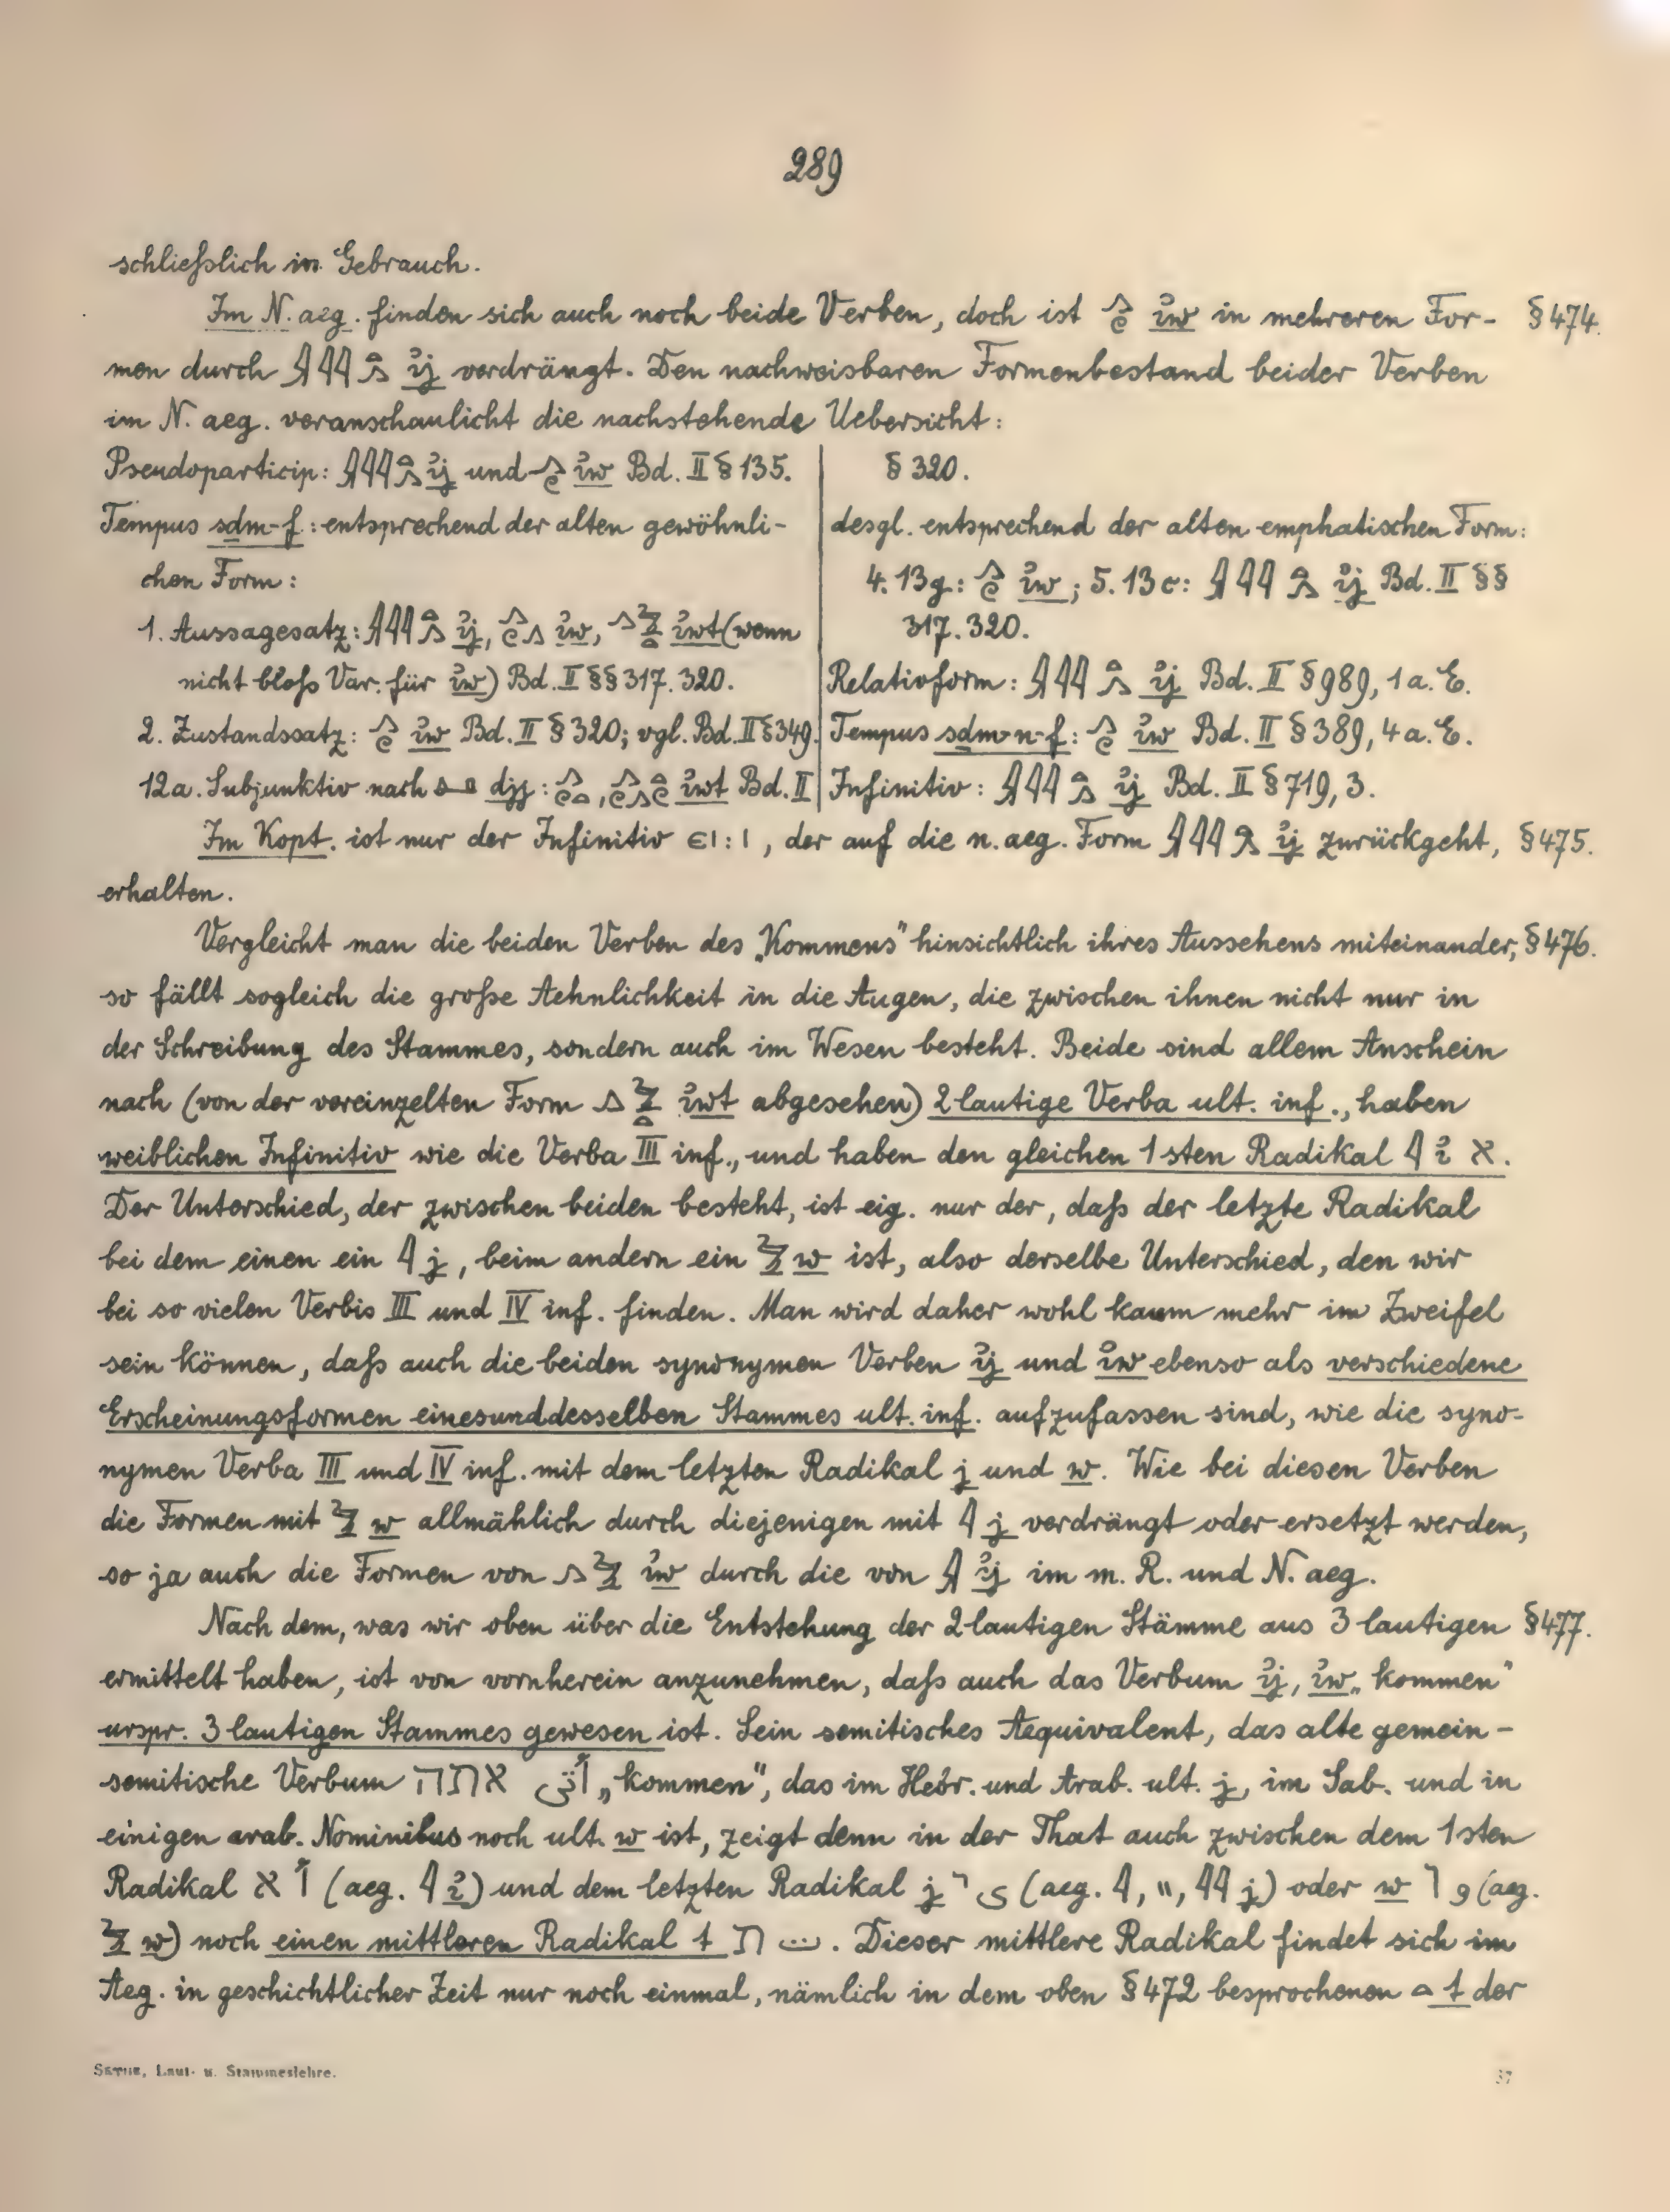 289
schließlich in Gebrauch.
Im N. aeg. finden sich auch noch beide Verben, doch ist 𓂻𓏲 ꞽw in mehreren For- § 474.
men durch 𓇍𓇋𓇋𓏏𓂻 ꞽj verdrängt. Den nachweisbaren Formenbestand beider Verben
im N. aeg. veranschaulicht die nachstehende Uebersicht:
Pseudoparticip: 𓇍𓇋𓇋𓏏𓂻 ꞽj und 𓂻𓏲 ꞽw Bd. II § 135.
Tempus sdm-f: entsprechend der alten gewöhnli-
chen Form:
1. Aussagesatz: 𓇍𓇋𓇋𓏏𓂻 ꞽj, 𓂻𓏲𓂻 ꞽw, 𓂻𓅱𓏏 ꞽwt (wenn
nicht bloß Var. für ꞽw) Bd. II §§ 317. 320.
2. Zustandssatz: 𓂻𓏲 ꞽw Bd. II § 320; vgl. Bd. II § 349.
12a. Subjunktiv nach djj: ꞽwt Bd. II
§ 320.
desgl. entsprechend der alten emphatischen Form:
4. 13g: 𓂻𓏲 ꞽw; 5. 13c: 𓇍𓇋𓇋𓏏𓂻 ꞽj Bd. II §§
317. 320.
Relativform: 𓇍𓇋𓇋𓏏𓂻 ꞽj Bd. II § 989, 1 a. E.
Tempus sdm-n-f: 𓂻𓏲 ꞽw Bd. II § 389, 4 a. E.
Infinitiv: 𓇍𓇋𓇋𓏏𓂻 ꞽj Bd. II § 719, 3.
Im Kopt. ist nur der Infinitiv ⲉⲓ : ⲓ, der auf die n. aeg. Form 𓇍𓇋𓇋𓏏𓂻 ꞽj zurückgeht, § 475.
erhalten.
Vergleicht man die beiden Verben des „Kommens" hinsichtlich ihres Aussehens miteinander, § 476.
so fällt sogleich die große Aehnlichkeit in die Augen, die zwischen ihnen nicht nur in
der Schreibung des Stammes, sondern auch im Wesen besteht. Beide sind allem Anschein
nach (von der vereinzelten Form 𓂻𓅱𓏏 ꞽwt abgesehen) 2 lautige Verba ult. inf., haben
weiblichen Infinitiv wie die Verba III inf., und haben den gleichen 1sten Radikal 𓇋 ꞽ א.
Der Unterschied, der zwischen beiden besteht, ist eig. nur der, daß der letzte Radikal
bei dem einen ein 𓇋 j, beim andern ein 𓅱 w ist, also derselbe Unterschied, den wir
bei so vielen Verbis III und IV inf. finden. Man wird daher wohl kaum mehr im Zweifel
sein können, daß auch die beiden synonymen Verben ꞽj und ꞽw ebenso als verschiedene
Erscheinungsformen einesunddesselben Stammes ult. inf. aufzufassen sind, wie die syno-
nymen Verba III und IV inf. mit dem letzten Radikal j und w. Wie bei diesen Verben
die Formen mit 𓅱 w allmählich durch diejenigen mit 𓇋 j verdrängt oder ersetzt werden,
so ja auch die Formen von 𓂻𓅱 ꞽw durch die von 𓇍 ꞽj im m. R. und N. aeg.
Nach dem, was wir oben über die Entstehung der 2 lautigen Stämme aus 3 lautigen § 477.
ermittelt haben, ist von vornherein anzunehmen, daß auch das Verbum ꞽj, ꞽw „kommen"
urspr. 3 lautigen Stammes gewesen ist. Sein semitisches Aequivalent, das alte gemein-
semitische Verbum אתה أتى „kommen", das im Hebr. und Arab. ult. j, im Sab. und in
einigen arab. Nominibus noch ult. w ist, zeigt denn in der That auch zwischen dem 1sten
Radikal א أ (aeg. 𓇋 ꞽ) und dem letzten Radikal j י ى (aeg. 𓇋, 𓏭, 𓇋𓇋 j) oder w ו و (aeg.
𓅱 w) noch einen mittleren Radikal t ת ت. Dieser mittlere Radikal findet sich im
Aeg. in geschichtlicher Zeit nur noch einmal, nämlich in dem oben § 472 besprochenen 𓏏 t der
Sethe, Laut- u. Stammeslehre. 37